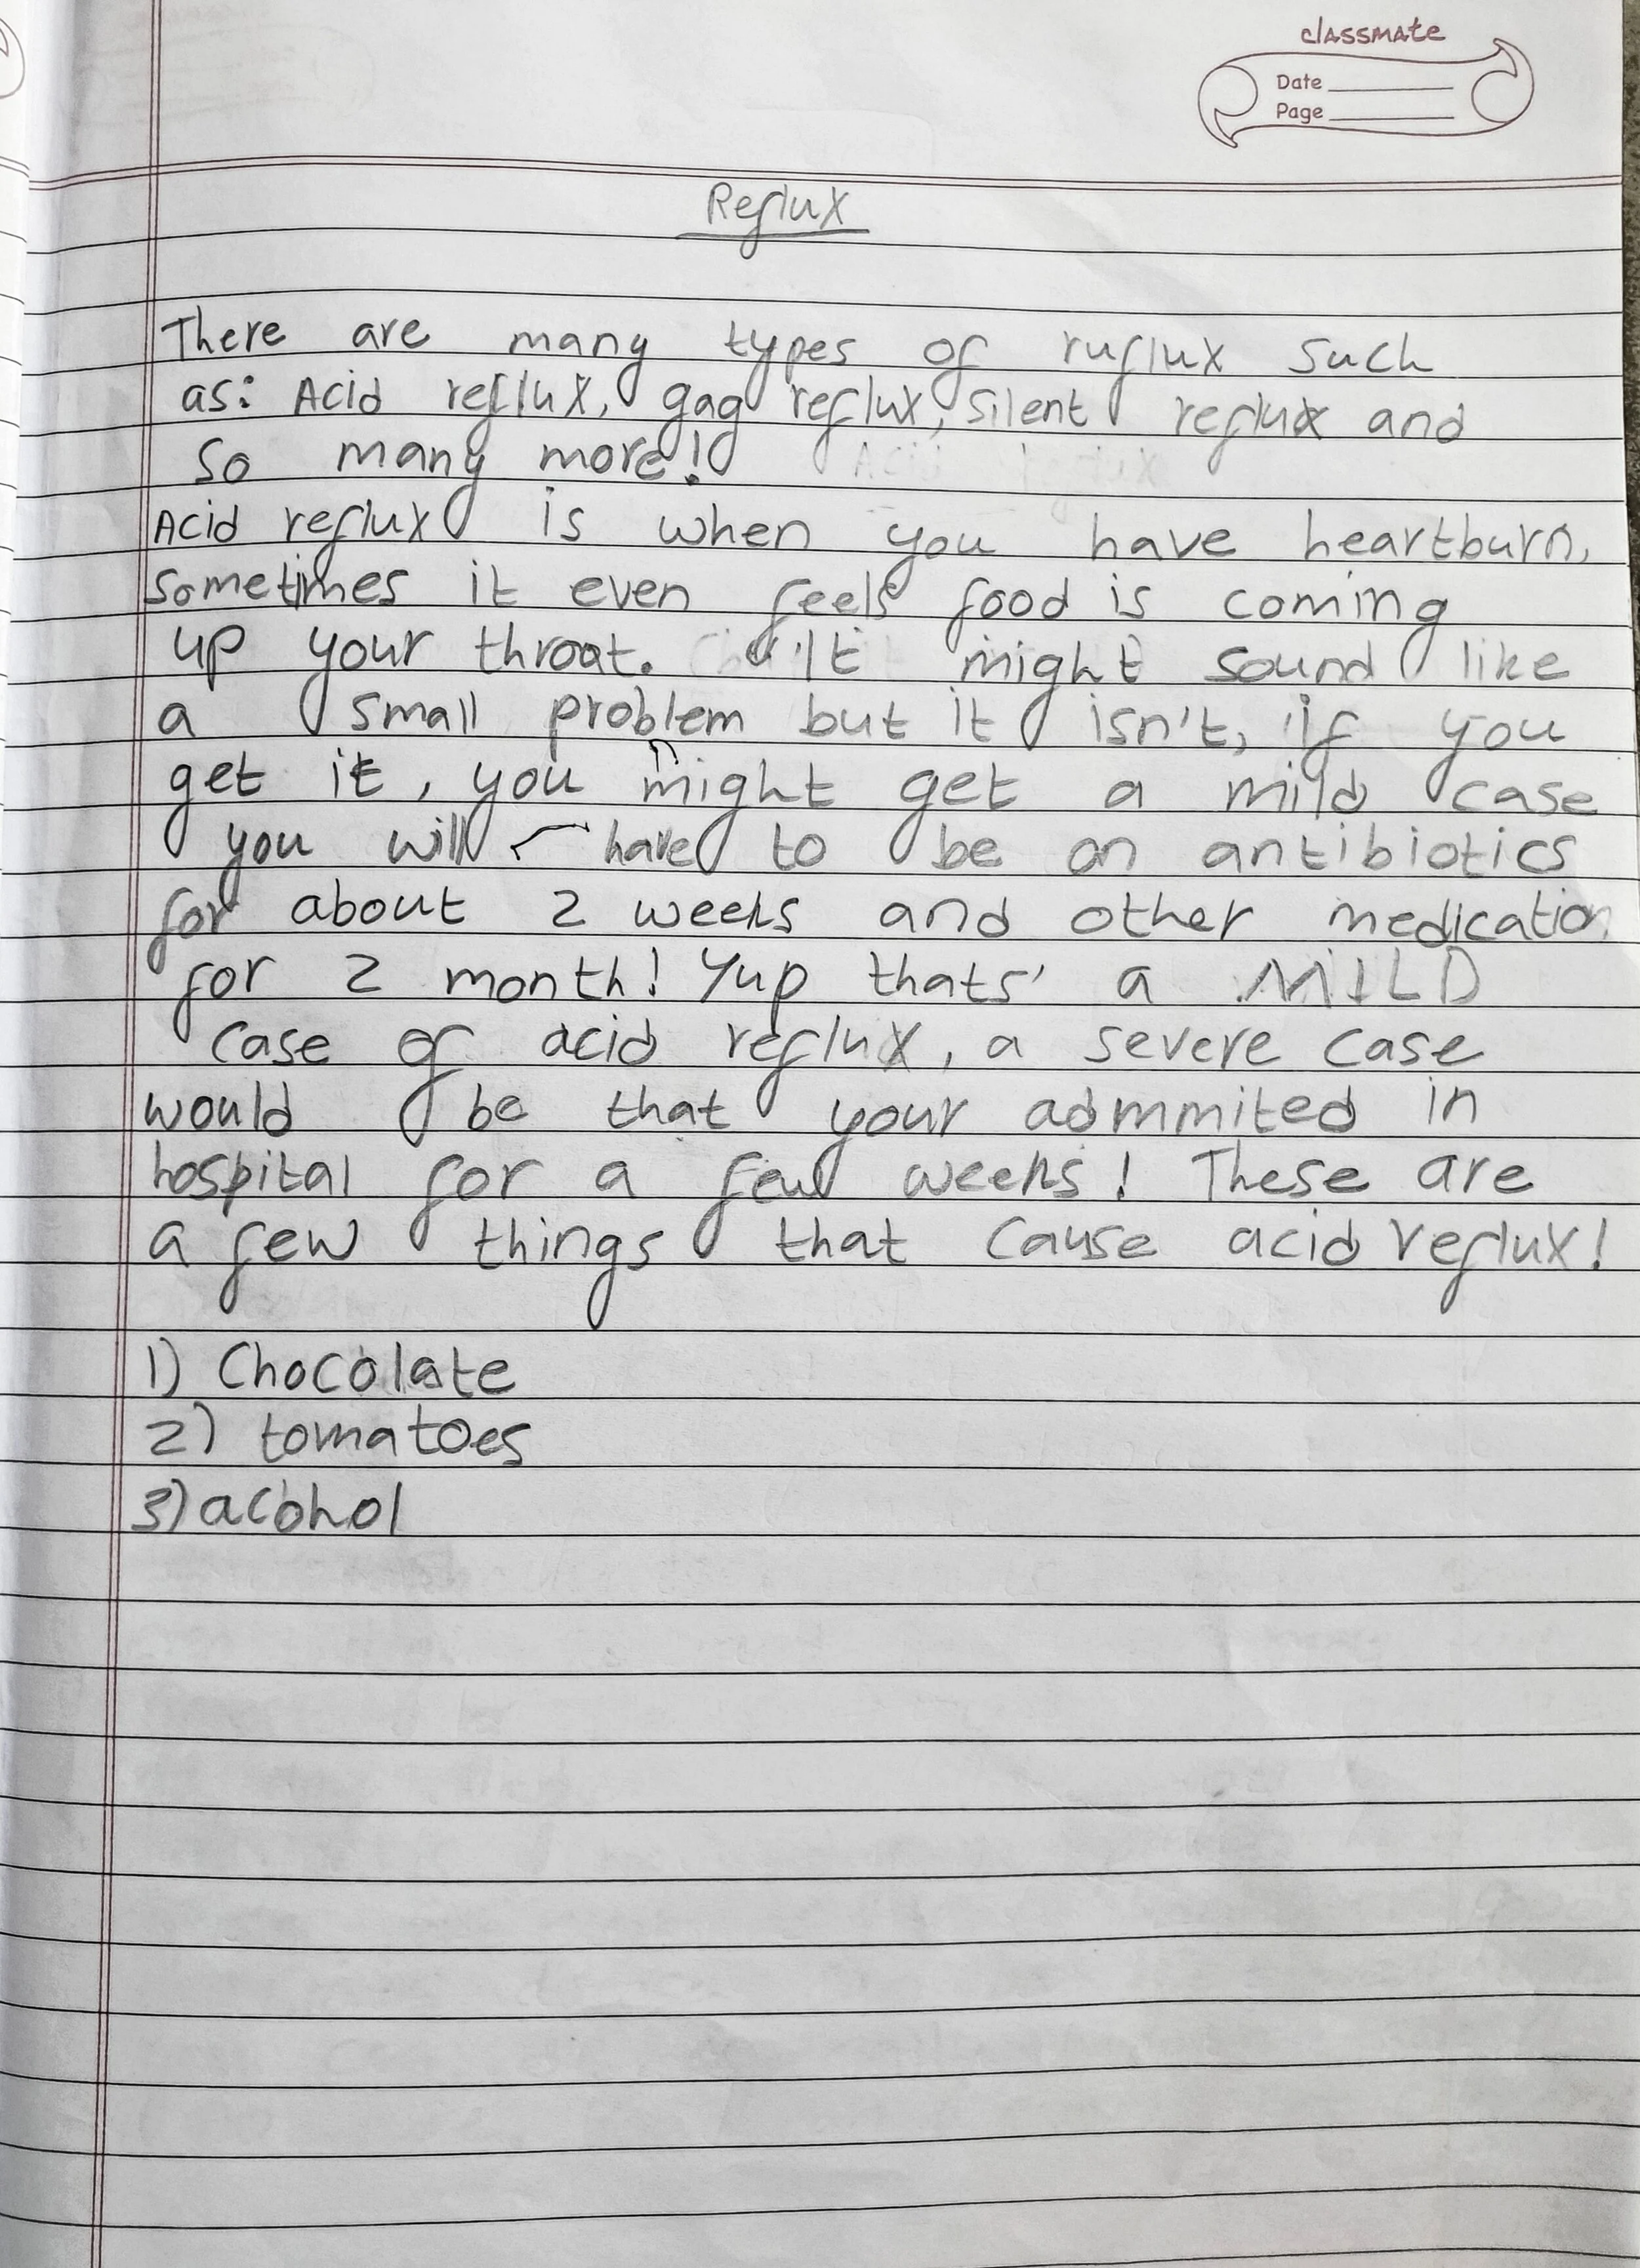 classmate
Date
Page
Reflux
There are many types of ruflux such
as: Acid reflux, gag reflux, silent reflux and
so many more!
Acid reflux is when you have heartburn,
sometimes it even feels food is coming
up your throat. It might sound like
a small problem but it isn't, if you
get it, you might get a mild case
you will have to be on antibiotics
for about 2 weeks and other medication
for 2 month! Yup thats' a MILD
case of acid reflux, a severe case
would be that your admmited in
hospital for a few weeks! These are
a few things that cause acid reflux!
1) Chocolate
2) tomatoes
3) acohol